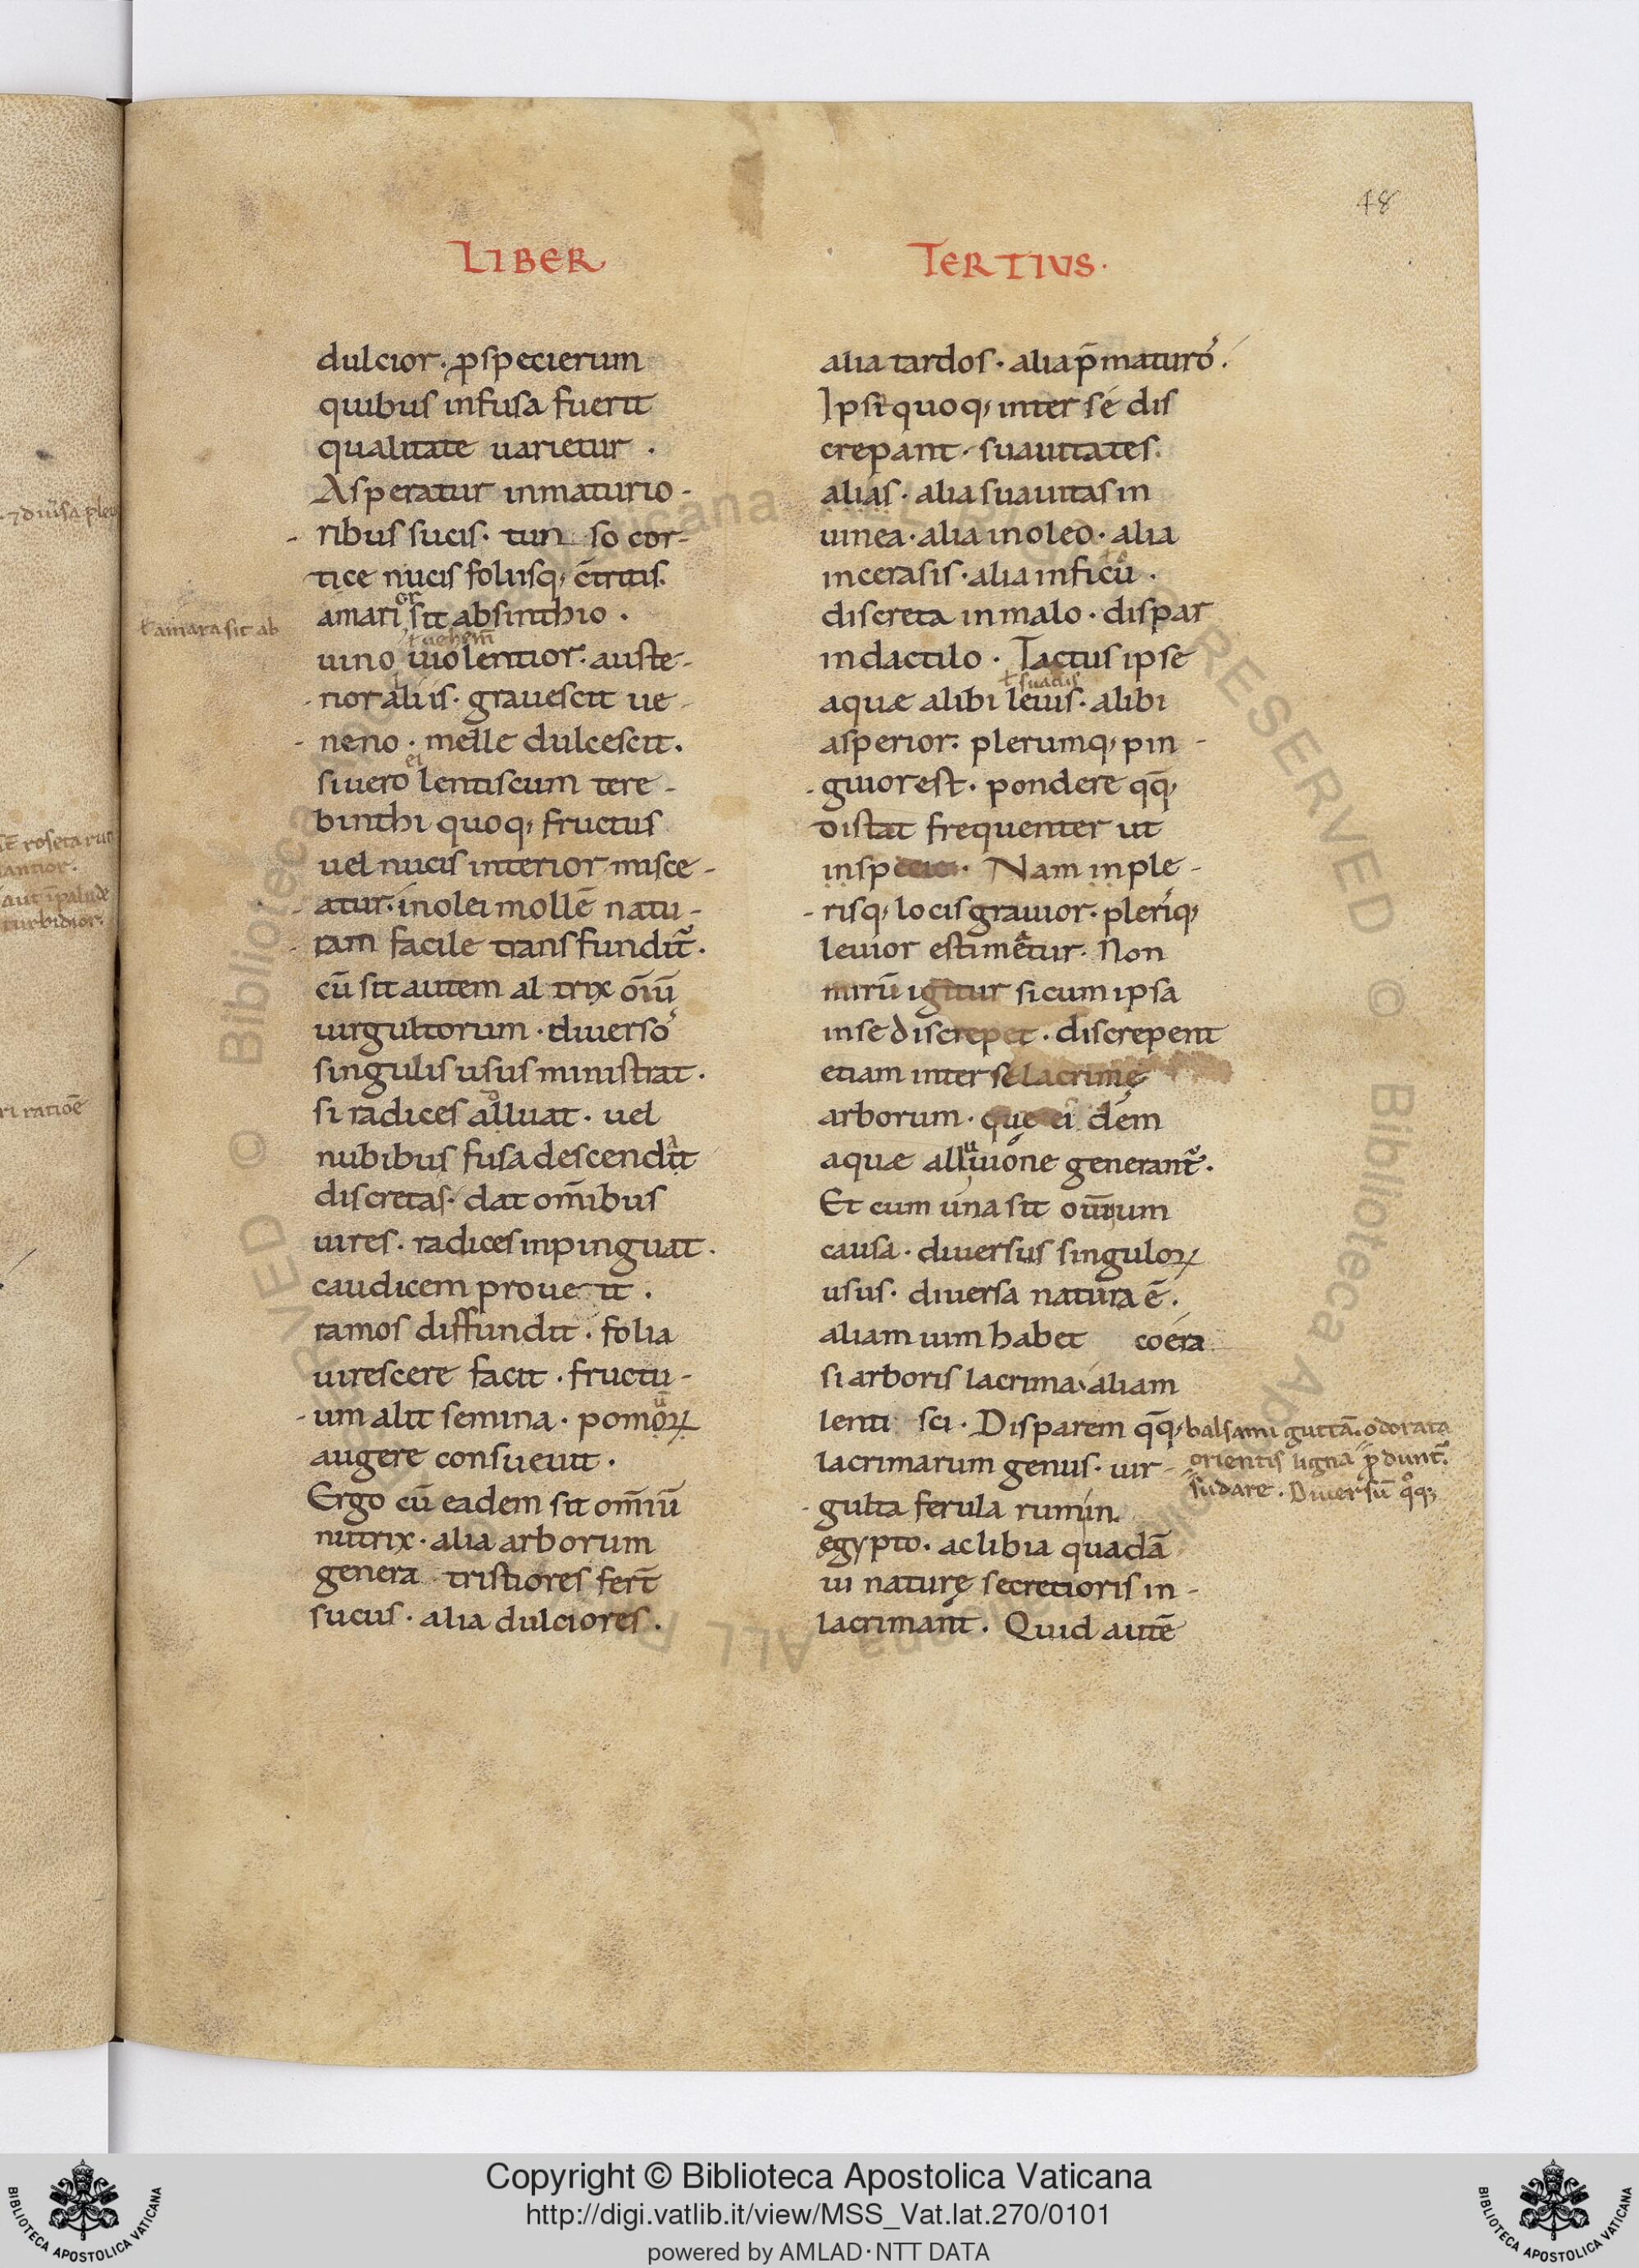 48
LIBER
dulcior · ꝓspecierum
quibus infusa fuerit
qualitate uarietur ·
Asperatur inmaturio-
ribus sucis · tun so cor-
tice nucis foliisq; c̄tritis.
amarior sit absinthio ·
ł amara sit ab
uino uiolentior · auste-
rior aliis · grauescit ue-
neno · melle dulcescit.
ei
siuero lentiscum tere-
binthi quoq; fructus
uel nucis interior misce-
atur · inolei mollē natu-
ram facile transfundit᷑.
cū sit autem al trix om̄iū
uirgultorum · diuersos
singulis usus ministrat.
si radices alluat · uel
nubibus fusa descendit
discretas · dat om̄ibus
uires · radices inpinguat.
caudicem proue it ·
ramos diffundit · folia
uirescere facit · fructu-
um alit semina · pomoꝝ
augere consueuit ·
Ergo cū eadem sit om̄iū
nutrix · alia arborum
genera tristiores fert̄
sucus · alia dulciores ·
TERTIUS·
alia tardos · alia p̄maturos.
Ipse quoq; inter se dis
crepant · suauitates.
alias · alia suauitas in
uinea · alia inoleo · alia
incerasis · alia inficu ·
discreta in malo · dispar
indactilo · Tactus ipse
ł suauis
aquæ alibi leuis · alibi
asperior · plerumq; pin-
guior est · pondere qq̄;
distat frequenter ut
inspecie · Nam inple-
risq; locis grauior · plerisq;
leuior estimetur · Non
mirū igitur si cum ipsa
inse discrepet · discrepent
etiam inter se lacrimę
arborum · que ei dem
aquæ alluuione generant᷑.
Et cum una sit om̄ium
causa · diuersus singuloꝝ
usus · diuersa natura ē.
aliam uim habet cera
si arboris lacrima · aliam
lenti sci · Disparem qq̄;
lacrimarum genus · uir-
gulta ferula rumin
egypto · ac libia quadā
ui naturę secretioris in-
lacrimant · Quid autē
balsami guttā. odorata
orientis ligna p̄dunt᷑.
sudare. Diuersū qq̊;
Copyright © Biblioteca Apostolica Vaticana
http://digi.vatlib.it/view/MSS_Vat.lat.270/0101
powered by AMLAD·NTT DATA
BIBLIOTECA APOSTOLICA VATICANA
BIBLIOTECA APOSTOLICA VATICANA